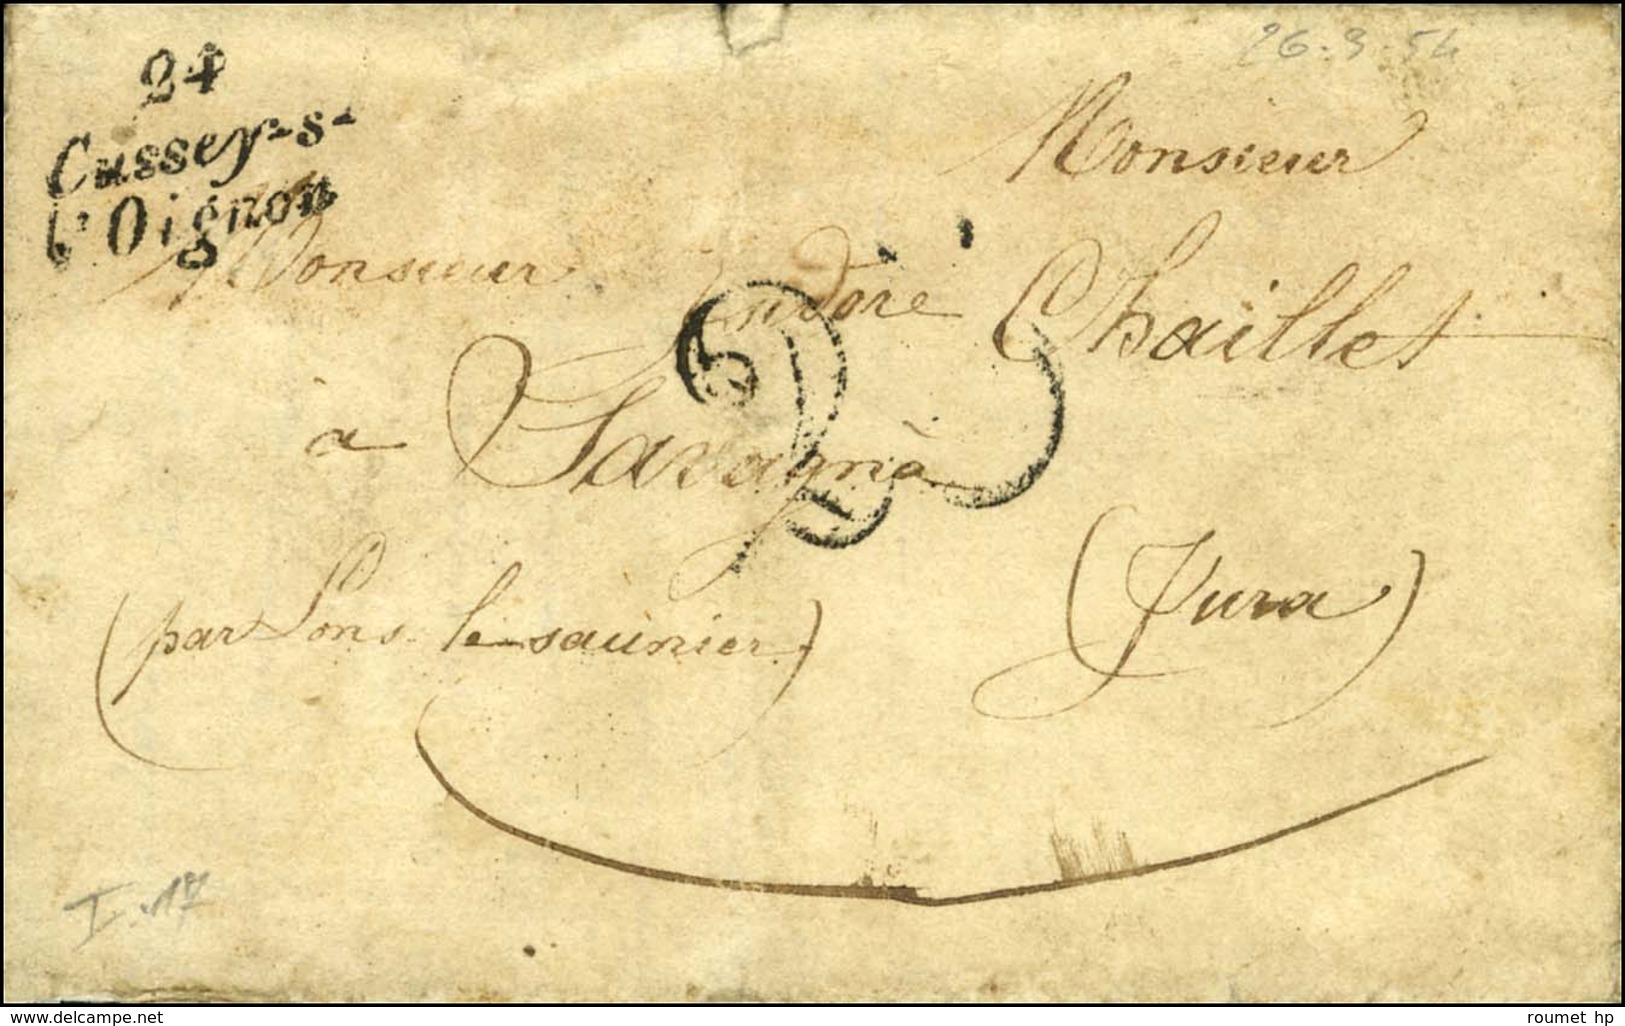 26-3-54
24
Cussey-s-
l'Oignon
Monsieur
Monsieur Isidore Chaillet
à Savagna
(par Lons-le-saunier) (Jura)
25
I.17
delcampe.net
roumet hp